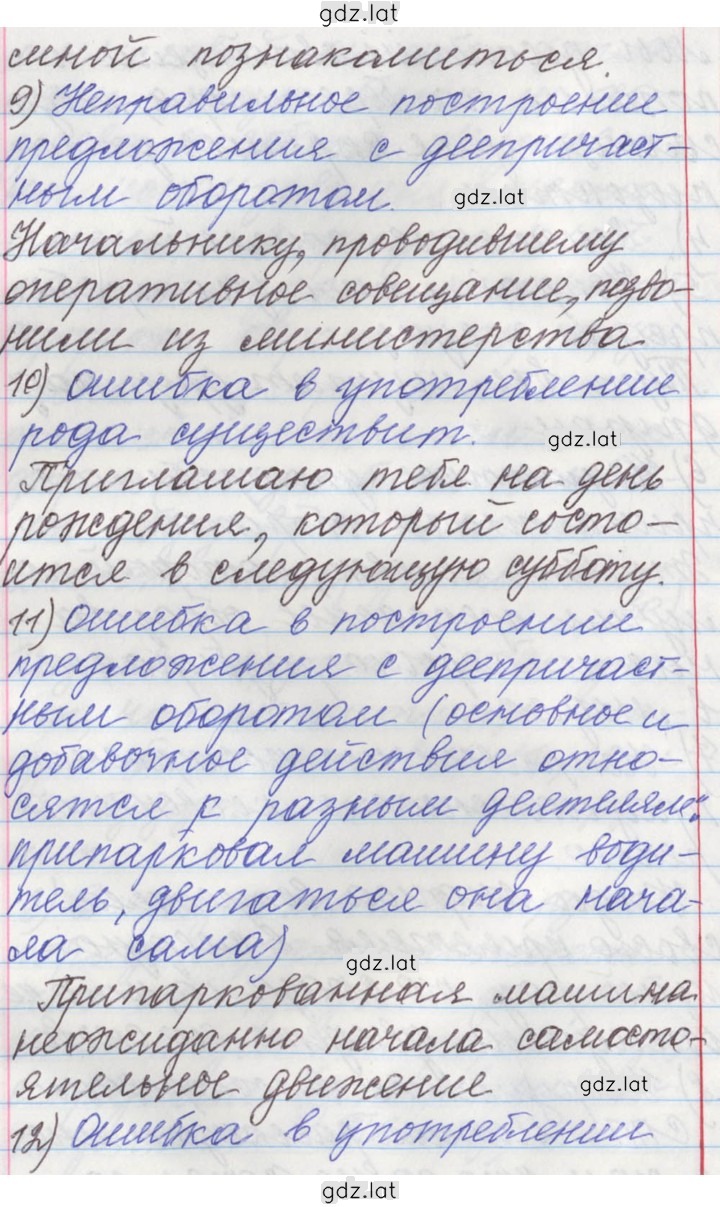 gdz.lat
мной познакомиться.
9) Неправильное построение
предложения с деепричаст-
ным оборотом.
gdz.lat
Начальнику, проводившему
оперативное совещание, позво-
нили из министерства
10) Ошибка в употреблении
рода существит.
gdz.lat
Приглашаю тебя на день
рождения, который состо-
ится в следующую субботу.
11) Ошибка в построении
предложения с деепричаст-
ным оборотом (основное и
добавочное действия отно-
сятся к разным деятелям:
припарковал машину води-
тель, двигаться она нача-
ла сама)
gdz.lat
Припаркованная машина
неожиданно начала самосто-
ятельное движение
gdz.lat
12) Ошибка в употреблении
gdz.lat